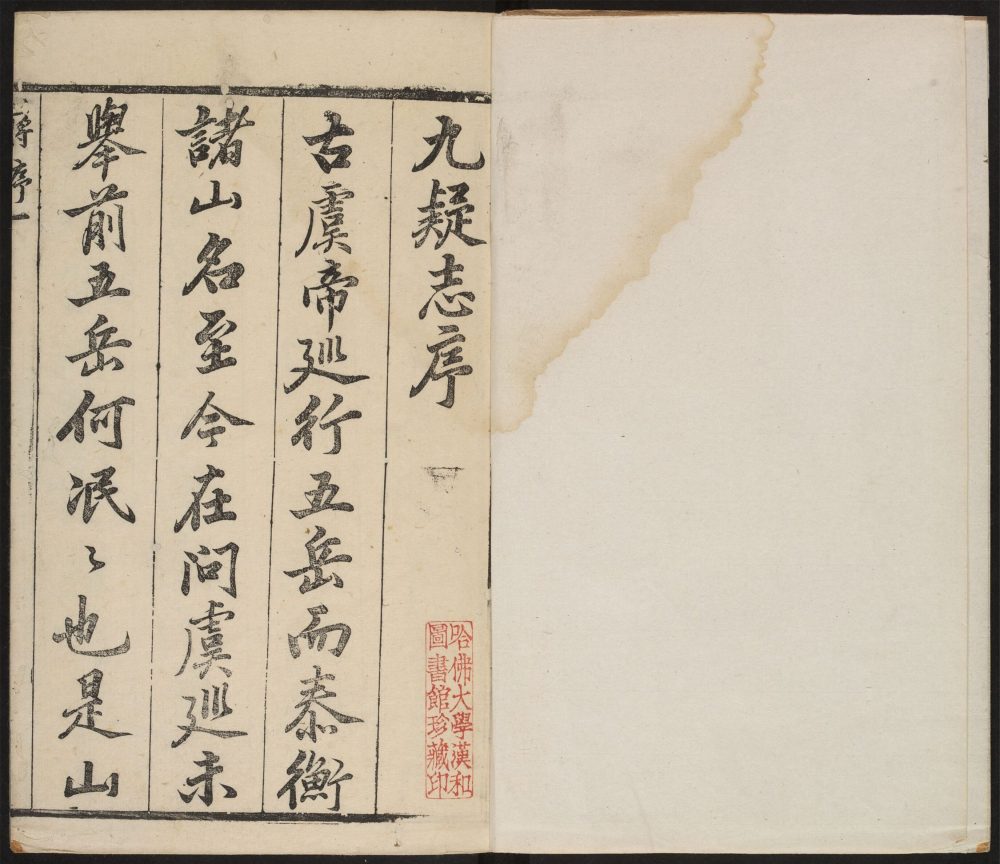 九疑志序
古虞帝廵行五岳而泰衡
諸山名至今在問虞廵未
舉前五岳何泯〻也是山
序一
哈佛大學漢和
圖書館珍藏印